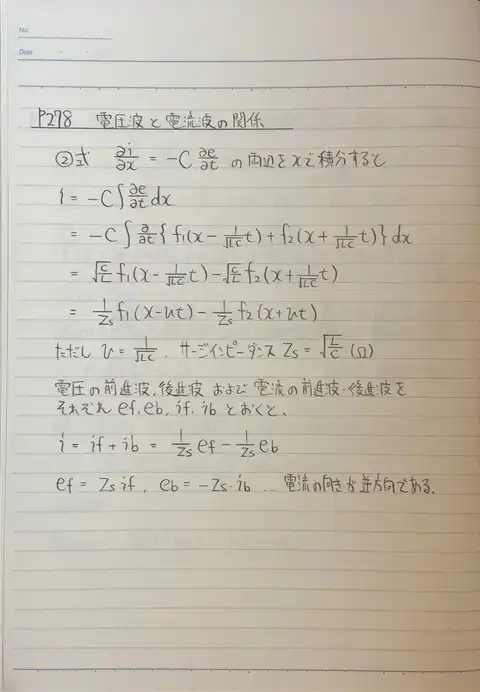 No.
Date
P278 電圧波と電流波の関係
②式 ∂i/∂x = -C ∂e/∂t の両辺をxで積分すると
i = -C∫ ∂e/∂t dx
= -C∫ ∂/∂t { f₁(x - 1/√LC t) + f₂(x + 1/√LC t)} dx
= √C/L f₁(x - 1/√LC t) - √C/L f₂(x + 1/√LC t)
= 1/Zs f₁(x-υt) - 1/Zs f₂(x+υt)
ただし υ = 1/√LC . サージインピーダンス Zs = √L/C (Ω)
電圧の前進波,後進波 および 電流の前進波・後進波を
それぞれ ef, eb, if, ib とおくと、
i = if + ib = 1/Zs ef - 1/Zs eb
ef = Zs if . eb = -Zs・ib … 電流の向きが逆方向である.